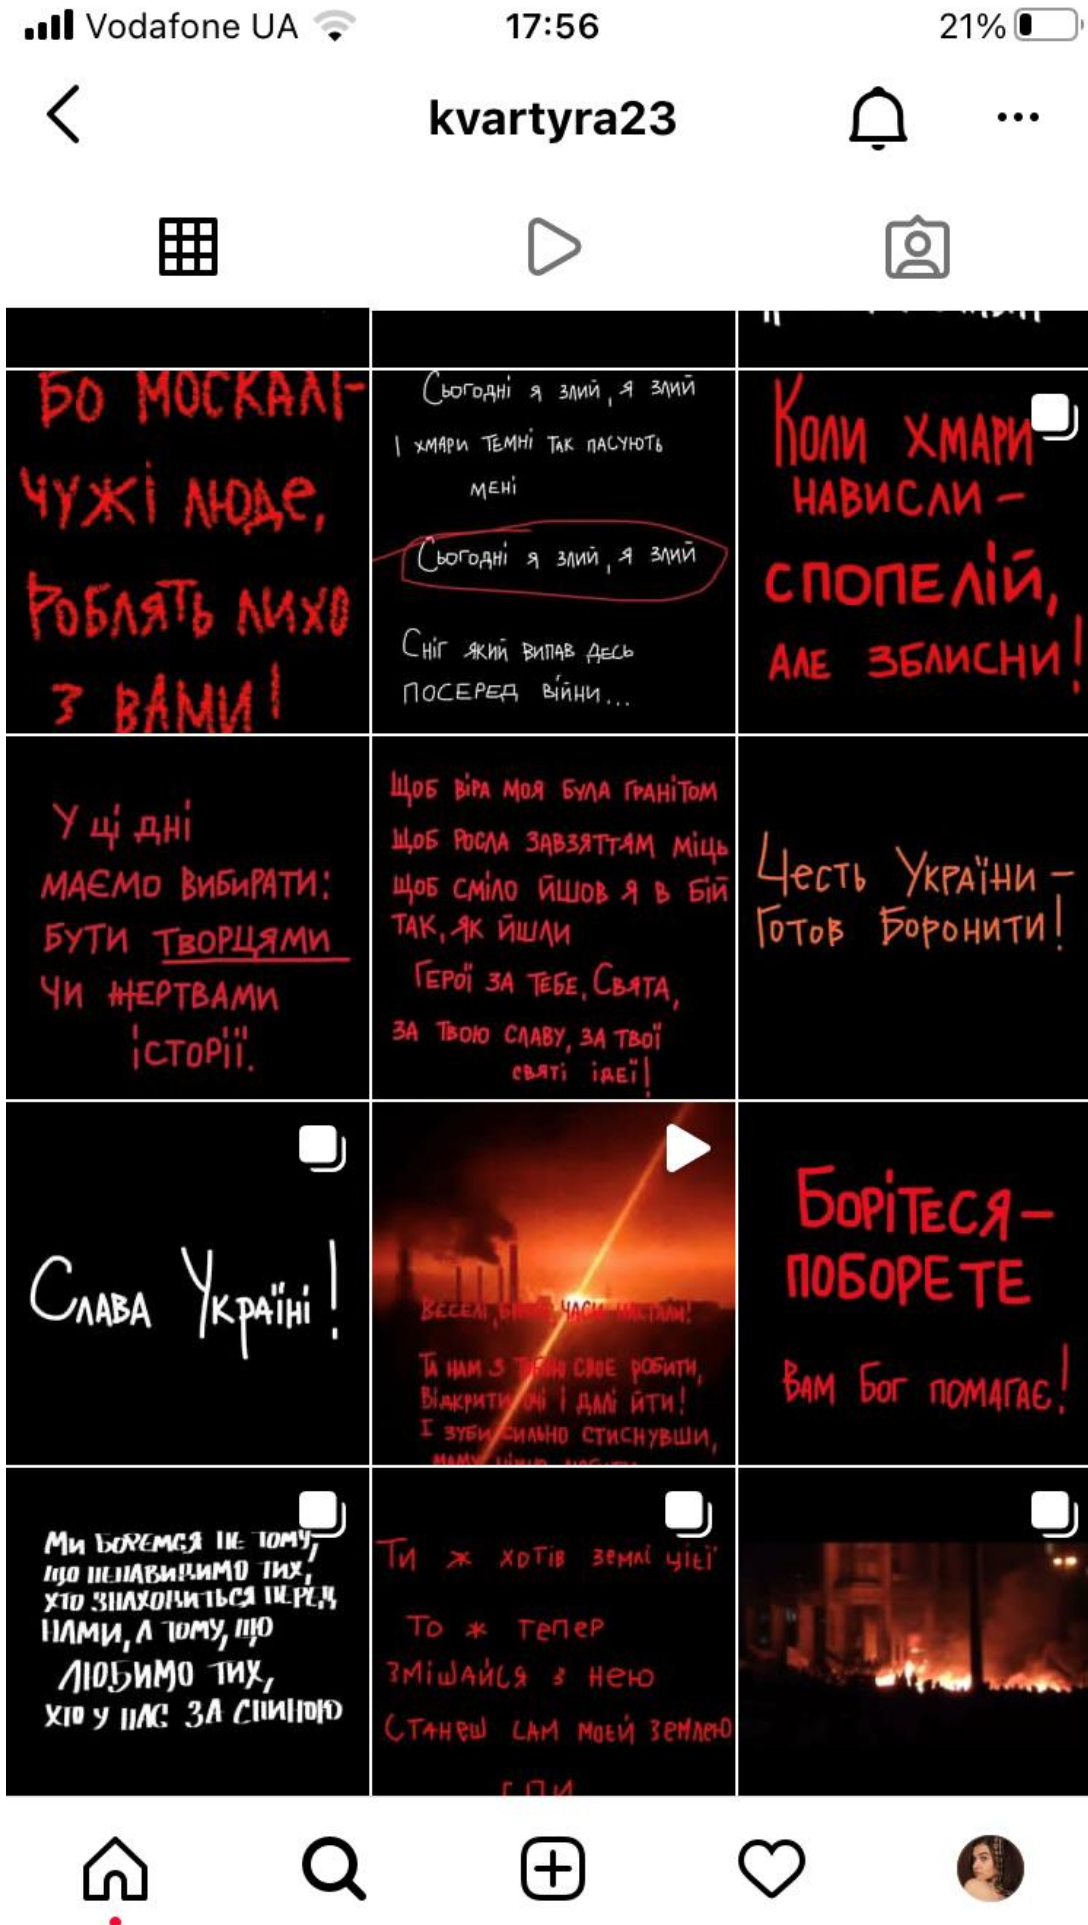 Vodafone UA
17:56
21%
kvartyra23
БО МОСКАЛІ-
ЧУЖІ ЛЮДЕ,
РОБЛЯТЬ ЛИХО
З ВАМИ!
Сьогодні я злий, я злий
І ХМАРИ ТЕМНІ ТАК ПАСУЮТЬ
МЕНІ
Сьогодні я злий, я злий
Сніг який випав десь
посеред війни...
Коли хмари
нависли -
спопелій,
але зблисни!
У ці дні
маємо вибирати:
бути творцями
чи жертвами
історії.
Щоб віра моя була гранітом
Щоб росла завзяттям міць
Щоб сміло йшов я в бій
так, як йшли
Герої за тебе, Свята,
за твою славу, за твої
святі ідеї!
Честь України -
Готов Боронити!
Слава Україні!
Веселі, часи настали!
Та нам з тобою своє робити,
Відкрити очі і далі йти!
І зуби сильно стиснувши,
Борітеся-
поборете
Вам Бог помагає!
Ми боремся не тому,
що ненавидимо тих,
хто знаходиться перед
нами, а тому, що
любимо тих,
хто у нас за спиною
Ти ж хотів землі цієї
То ж тепер
змішайся з нею
Станеш сам моєй землею